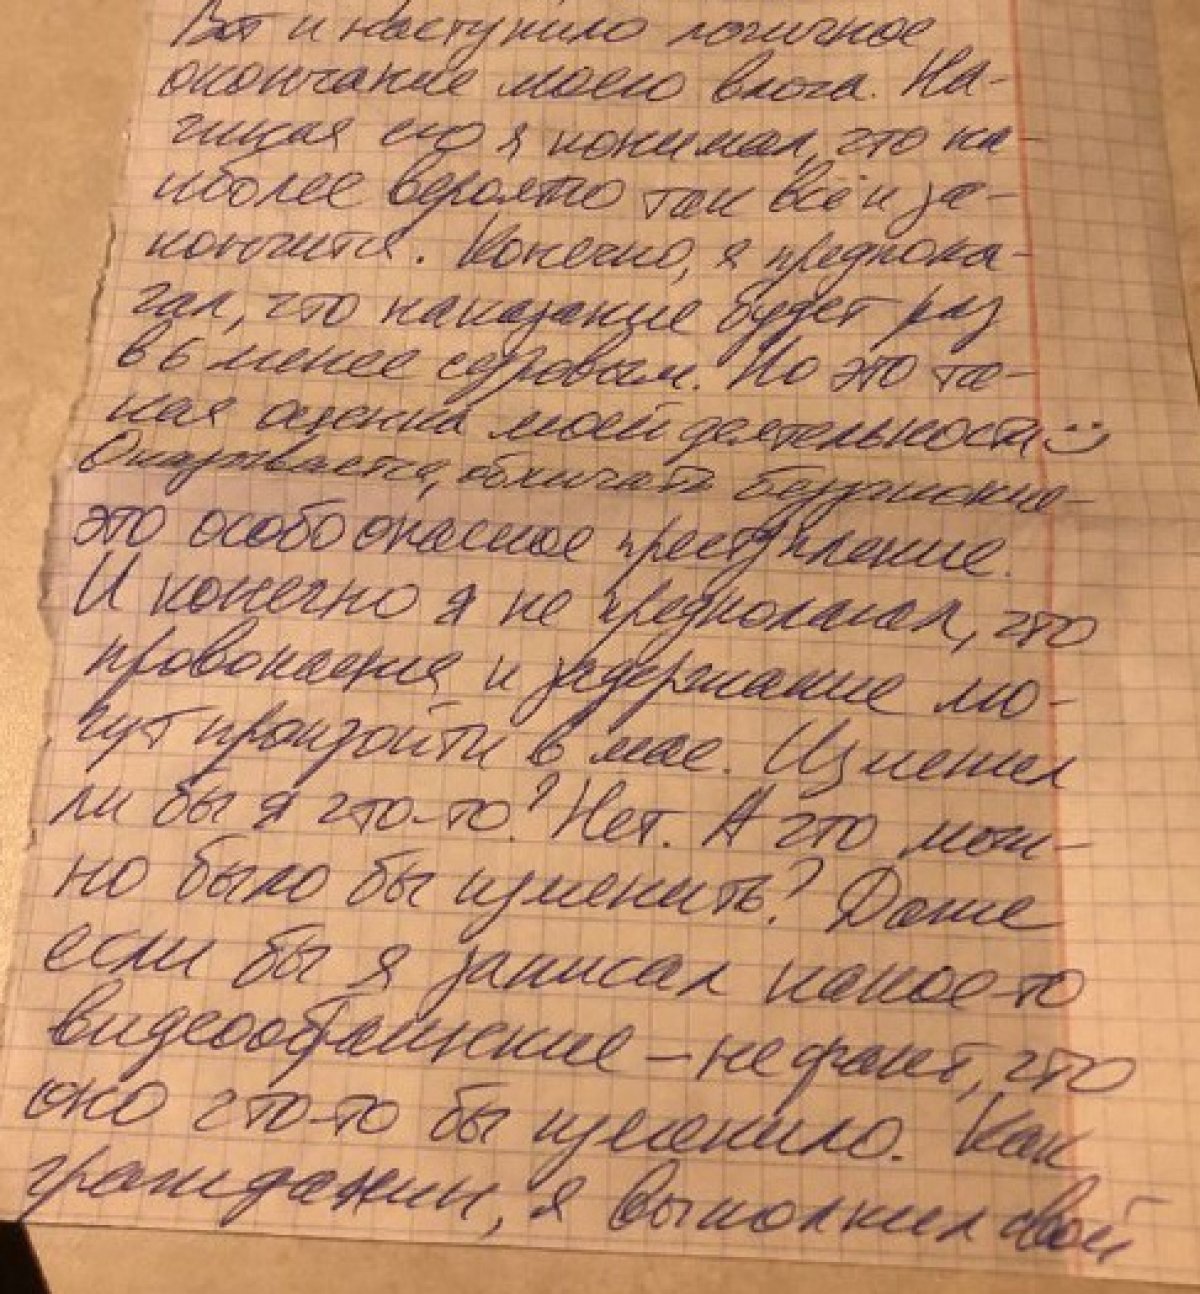 Вот и наступило логичное
окончание моего влога. На-
чиная его я понимал, что на-
иболее вероятно так всё и за-
кончится. Конечно, я предпола-
гал, что наказание будет раз
в 6 менее суровым. Но это та-
кая оценка моей деятельности :)
Оказывается, обличать беззаконие –
это особо опасное преступление.
И конечно я не предполагал, что
провокация и задержание мо-
гут произойти в мае. Изменил
ли бы я что-то? Нет. А что мож-
но было бы изменить? Даже
если бы я записал какое-то
видеообащение – не факт, что
оно что-то бы изменило. Как
гражданин, я выполнил свой